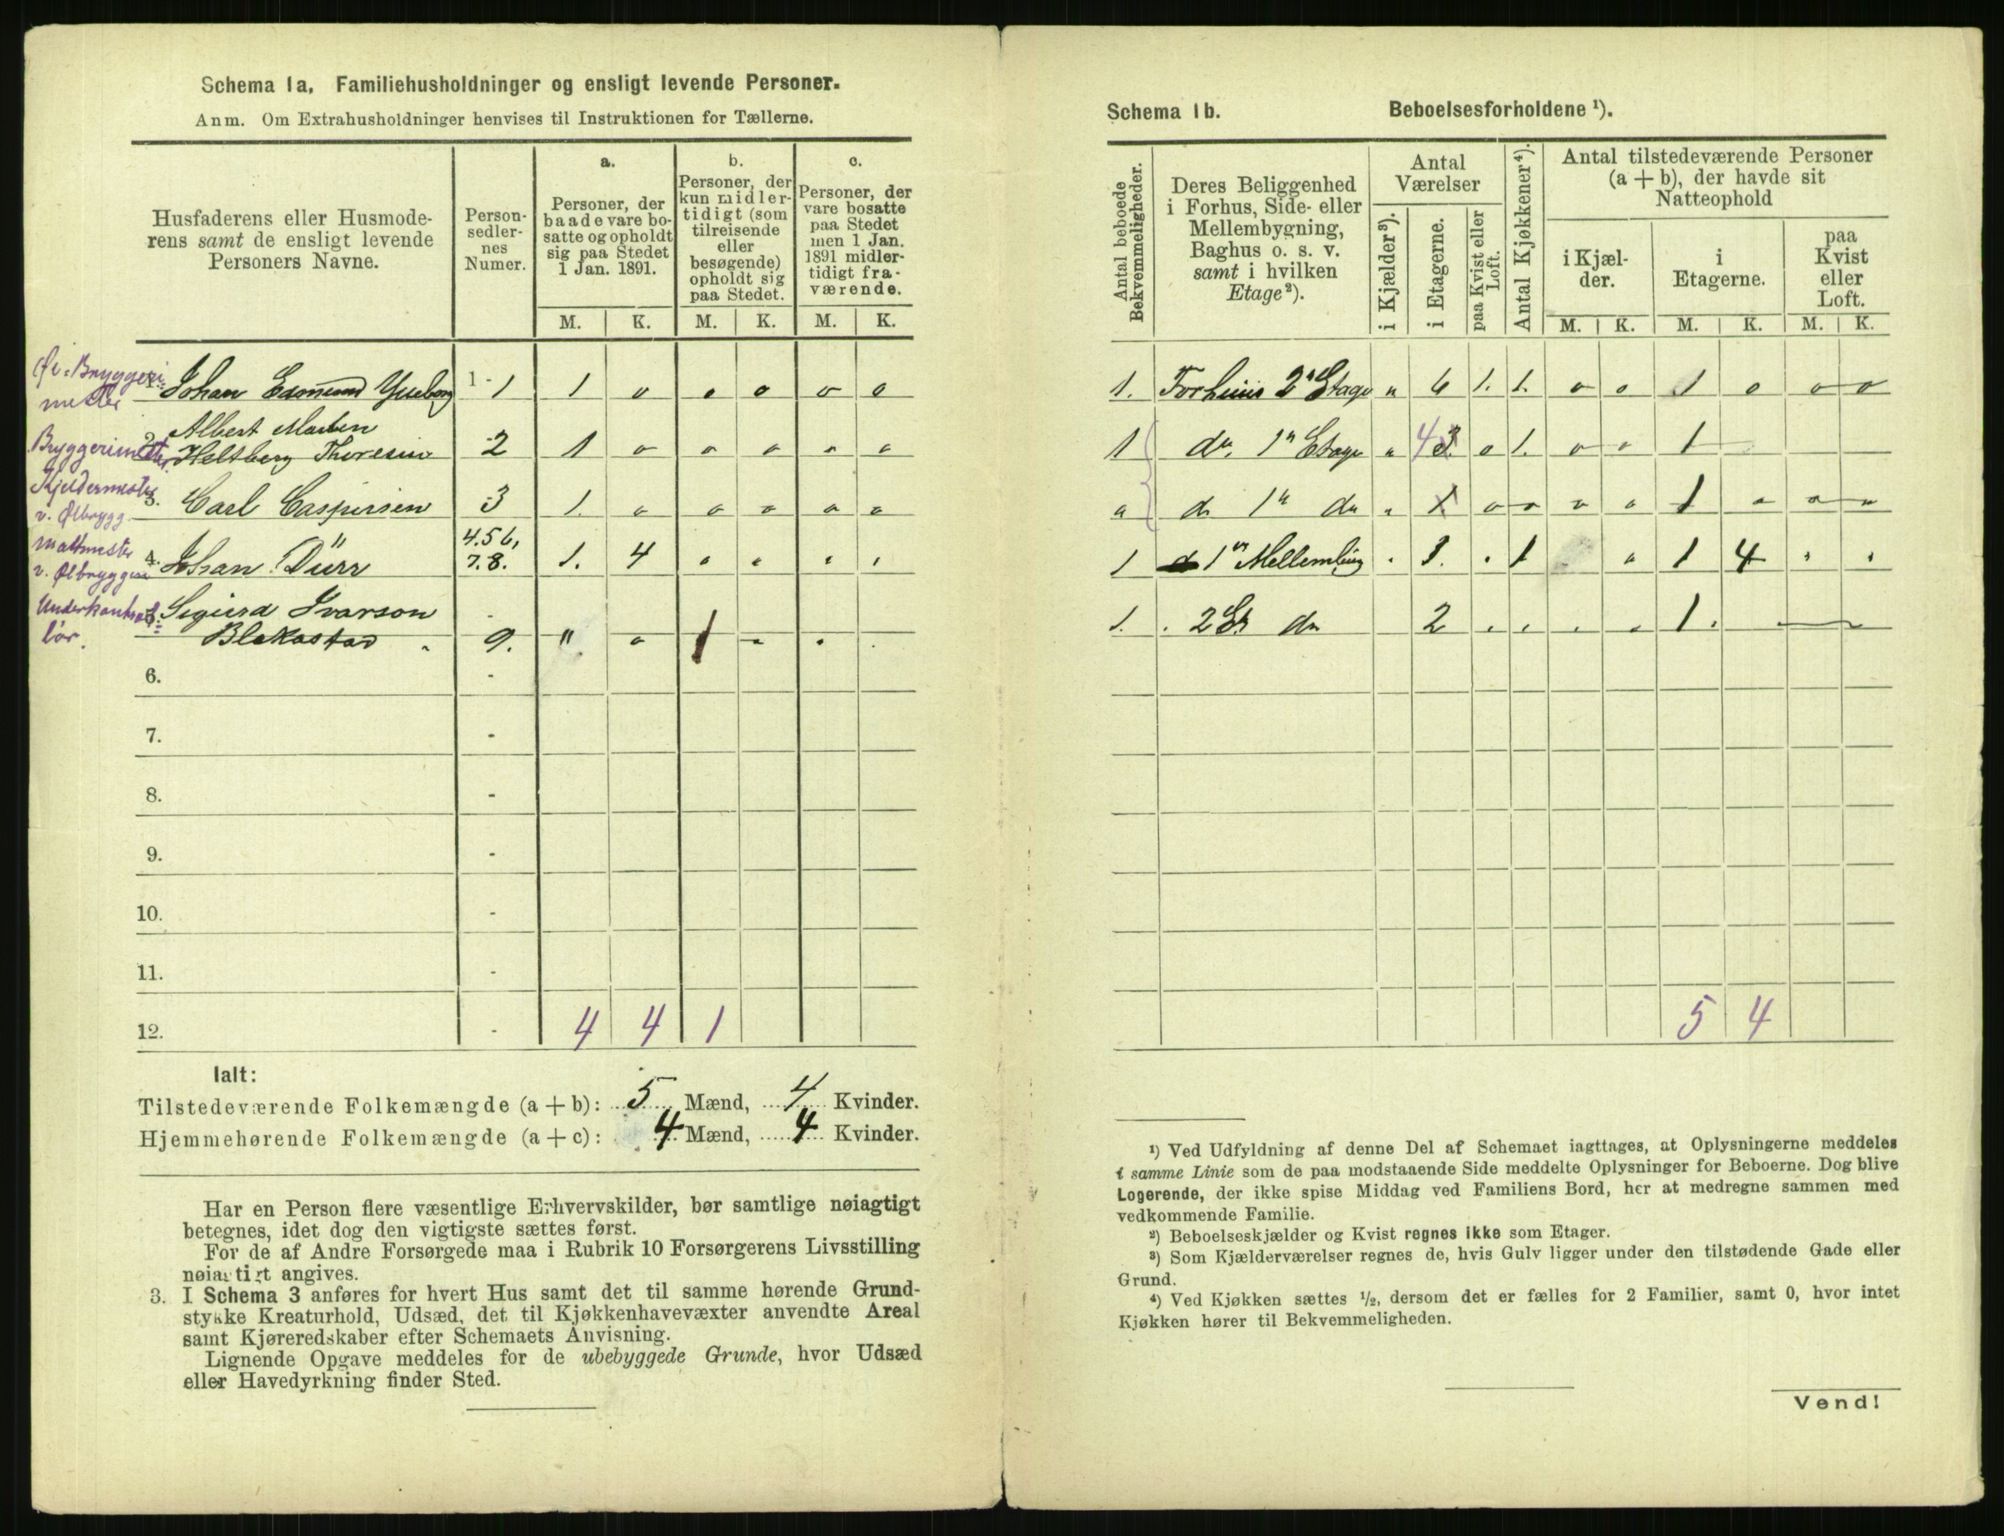 Schema 1a. Familiehusholdninger og ensligt levende Personer.
Anm. Om Extrahusholdninger henvises til Instruktionen for Tællerne.
Husfaderens eller Husmode-
rens samt de ensligt levende
Personers Navne.
Person-
sedler-
nes
Numer.
a.
Personer, der
baade vare bo-
satte og opholdt
sig paa Stedet
1 Jan. 1891.
b.
Personer, der
kun midler-
tidigt (som
tilreisende
eller
besøgende)
opholdt sig
paa Stedet.
c.
Personer, der
vare bosatte
paa Stedet
men 1 Jan.
1891 midler-
tidigt fra-
værende.
M. K. M. K. M. K.
Øl-Bryggeri
mester
1. Johan Edmund 1 - 1 1 0 0 0 0 0
Bryggerimester
2. Albert Morten
Heltberg Thoresen 2 1 0 0 0 0 0
Kjeldermester
v. Ølbrygg
3. Carl Caspersen 3 1. 0 0 0 0 0
Maltmester
v. Ølbryggeri
4. Johan Dürr 4. 5 6, 7. 8. 1. 4 " " " "
Underkontrol-
lør.
5. Sigurd Ivarson
Blakastad 9. " 0 1 " " "
6. -
7. -
8. -
9. -
10. -
11. -
12. - 4 4 1
Ialt:
Tilstedeværende Folkemængde (a + b): 5 Mænd, 4 Kvinder.
Hjemmehørende Folkemængde (a + c): 4 Mænd, 4 Kvinder.
Har en Person flere væsentlige Erhvervskilder, bør samtlige nøiagtigt
betegnes, idet dog den vigtigste sættes først.
For de af Andre Forsørgede maa i Rubrik 10 Forsørgerens Livsstilling
nøiagtigt angives.
3. I Schema 3 anføres for hvert Hus samt det til samme hørende Grund-
stykke Kreaturhold, Udsæd, det til Kjøkkenhavevæxter anvendte Areal
samt Kjøreredskaber efter Schemaets Anvisning.
Lignende Opgave meddeles for de ubebyggede Grunde, hvor Udsæd
eller Havedyrkning finder Sted.
Schema 1b. Beboelsesforholdene ¹).
Antal beboede
Bekvemmeligheder.
Deres Beliggenhed
i Forhus, Side- eller
Mellembygning,
Baghus o. s. v.
samt i hvilken
Etage²).
Antal
Værelser
i Kjælder³).
i Etagerne.
paa Kvist eller
Loft.
Antal Kjøkkener⁴).
Antal tilstedeværende Personer
(a + b), der havde sit
Natteophold
i Kjæl-
der.
i
Etagerne.
paa
Kvist
eller
Loft.
M. K. M. K. M. K.
1. Forhuus 2' Etage " 6 1. 1. 0 0 1 0 0 0
1 do. 1" Etage " 4 3. 0 1. 0 0 1
" do 1" do " 1 0 0 0 0 1 0 0 0
1 1" Mellembyg " 3. " 1 " 1 4 " "
1. 2 Et do 2 " " " " 1.
5 4
¹) Ved Udfyldning af denne Del af Schemaet iagttages, at Oplysningerne meddeles
i samme Linie som de paa modstaaende Side meddelte Oplysninger for Beboerne. Dog blive
Logerende, der ikke spise Middag ved Familiens Bord, her at medregne sammen med
vedkommende Familie.
²) Beboelseskjælder og Kvist regnes ikke som Etager.
³) Som Kjælderværelser regnes de, hvis Gulv ligger under den tilstødende Gade eller
Grund.
⁴) Ved Kjøkken sættes ½, dersom det er fælles for 2 Familier, samt 0, hvor intet
Kjøkken hører til Bekvemmeligheden.
Vend!